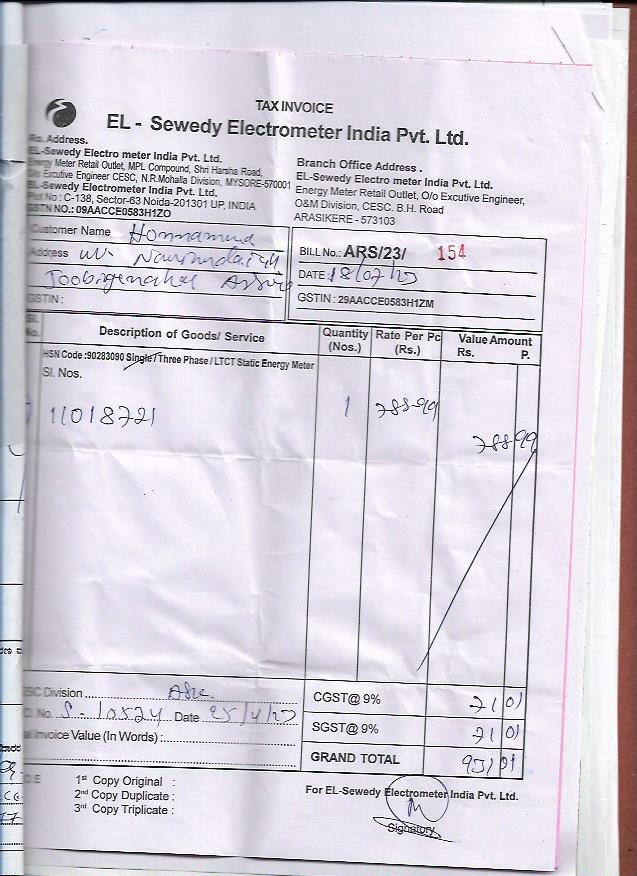 TAX INVOICE
EL - Sewedy Electrometer India Pvt. Ltd.
Address.
EL-Sewedy Electro meter India Pvt. Ltd.
Energy Meter Retail Outlet, MPL Compound, Shri Harsha Road,
O/o Excutive Engineer CESC, N.R.Mohalla Division, MYSORE-570001
EL-Sewedy Electrometer India Pvt. Ltd.
Plot No : C-138, Sector-63 Noida-201301 UP, INDIA
GSTN NO.: 09AACCE0583H1ZO
Branch Office Address .
EL-Sewedy Electro meter India Pvt. Ltd.
Energy Meter Retail Outlet, O/o Excutive Engineer,
O&M Division, CESC. B.H. Road
ARASIKERE - 573103
Customer Name
Address
GSTIN :
BILL No.: ARS/23/ 154
DATE 18/07/
GSTIN : 29AACCE0583H1ZM
SL No. Description of Goods/ Service Quantity (Nos.) Rate Per Pc (Rs.) Value Amount Rs. P.
HSN Code :90283090 Single / Three Phase / LTCT Static Energy Meter
Sl. Nos.
11018721 1 788-99
788 99
CESC Division
No. S-10524 Date 25/4/
Invoice Value (In Words) :
CGST@ 9% 71 01
SGST@ 9% 71 01
GRAND TOTAL 931 01
1st Copy Original :
2nd Copy Duplicate :
3rd Copy Triplicate :
For EL-Sewedy Electrometer India Pvt. Ltd.
Signatory